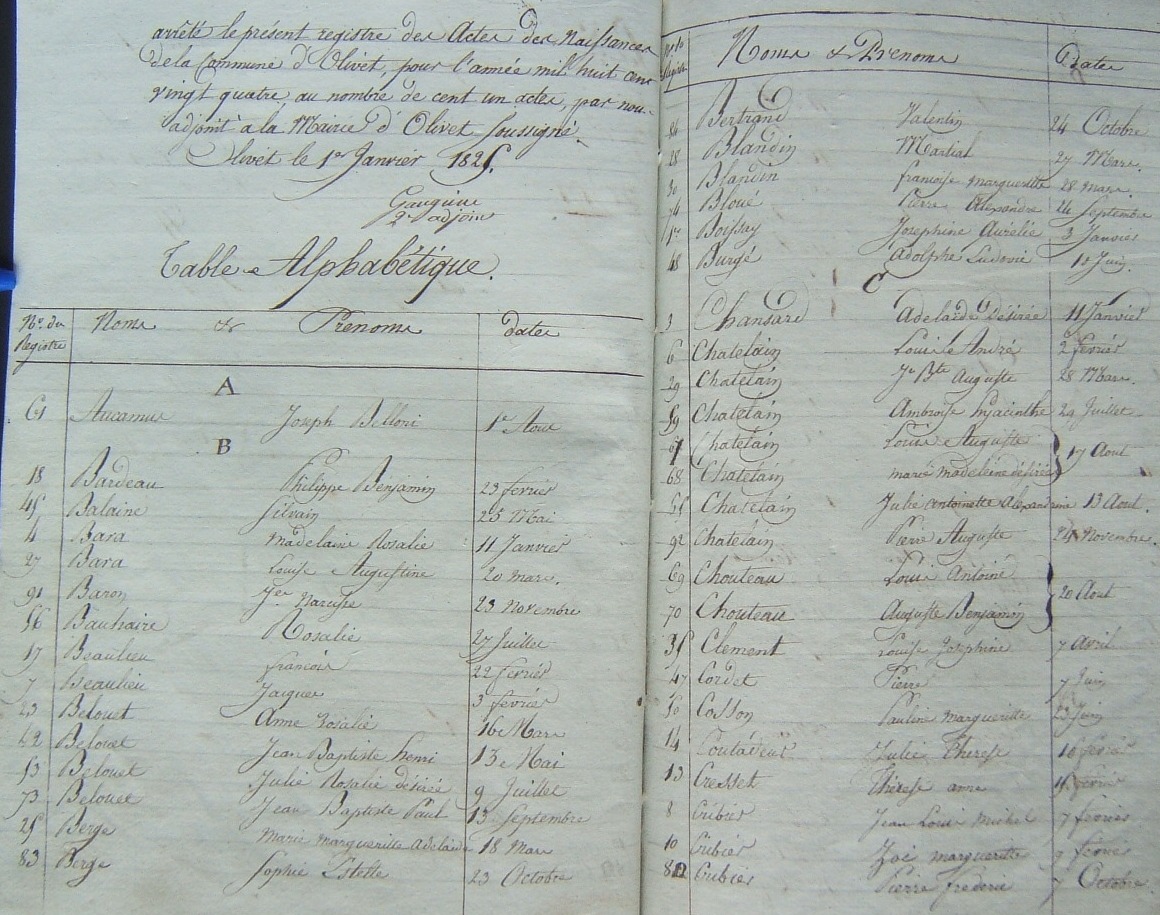 arrêté le présent registre des Actes des Naissances
de la Commune d'Olivet, pour l'année mil huit cent
vingt quatre, au nombre de cent un actes, par nous
adjoint à la Mairie d'Olivet soussigné
Olivet le 1er Janvier 1825.
2e adjoint
Table Alphabétique.
No. du Registre Noms & Prenoms dates
A
61 Aucamus Joseph 1er Aout
B
18 Bardeau Philippe Benjamin 23 fevrier
45 Balaine Silvain 25 Mai
4 Bara Madelaine Rosalie 11 Janvier
27 Bara Louise Augustine 20 mars.
91 Baron Narcisse 23 Novembre
56 Bauhaire Rosalie 27 Juillet
17 Beaulieu francois 22 fevrier
7 Beaulieu Jacques 3 fevrier
23 Belouet Anne Rosalie 16 Mars
42 Belouet Jean Baptiste henri 13 Mai
53 Belouet Julie Rosalie désirée 9 Juillet
73 Belouet Jean Baptiste Paul 13 Septembre
25 Berge Marie margueritte Adelaide 18 Mars
83 Berge Sophie Estelle 23 Octobre
Noms & Prenoms Dates
Bertrand Valentin 24 Octobre
28 Blandin Martial 27 Mars.
30 Blandin francoise margueritte 28 mars.
74 Bloué Pierre Alexandre 24 Septembre
1er Boissey Josephine Aurélie 3 Janvier
48 Burgé Adolphe Ludovic Juin.
C
3 Chansard Adelaide Désirée 11 Janvier
6 Chatelain Louis André 2 fevrier
29 Chatelain Jn Bte Auguste 28 Mars.
59 Chatelain Ambroise hyacinthe 29 Juillet
67 Chatelain Louis Auguste 17 Aout
68 Chatelain marie madeleine désirée
Chatelain Julie Antoinette Alexandrine 13 Aout.
92 Chatelain Pierre Auguste 24 Novembre.
69 Chouteau Louis Antoine 20 Aout
70 Chouteau Auguste Benjamin
35 Clement Louise Josephine 7 Avril
47 Cordet Pierre 7 Juin
50 Cosson Pauline margueritte 23 Juin
14 Julie Therese 16 fevrier
13 Cresset Thérèse anne fevrier
8 Cribier Jean Louis Michel 7 fevrier
10 Cribier Zoé margueritte 9 fevrier
80 Cribier Pierre frederic 7 Octobre.